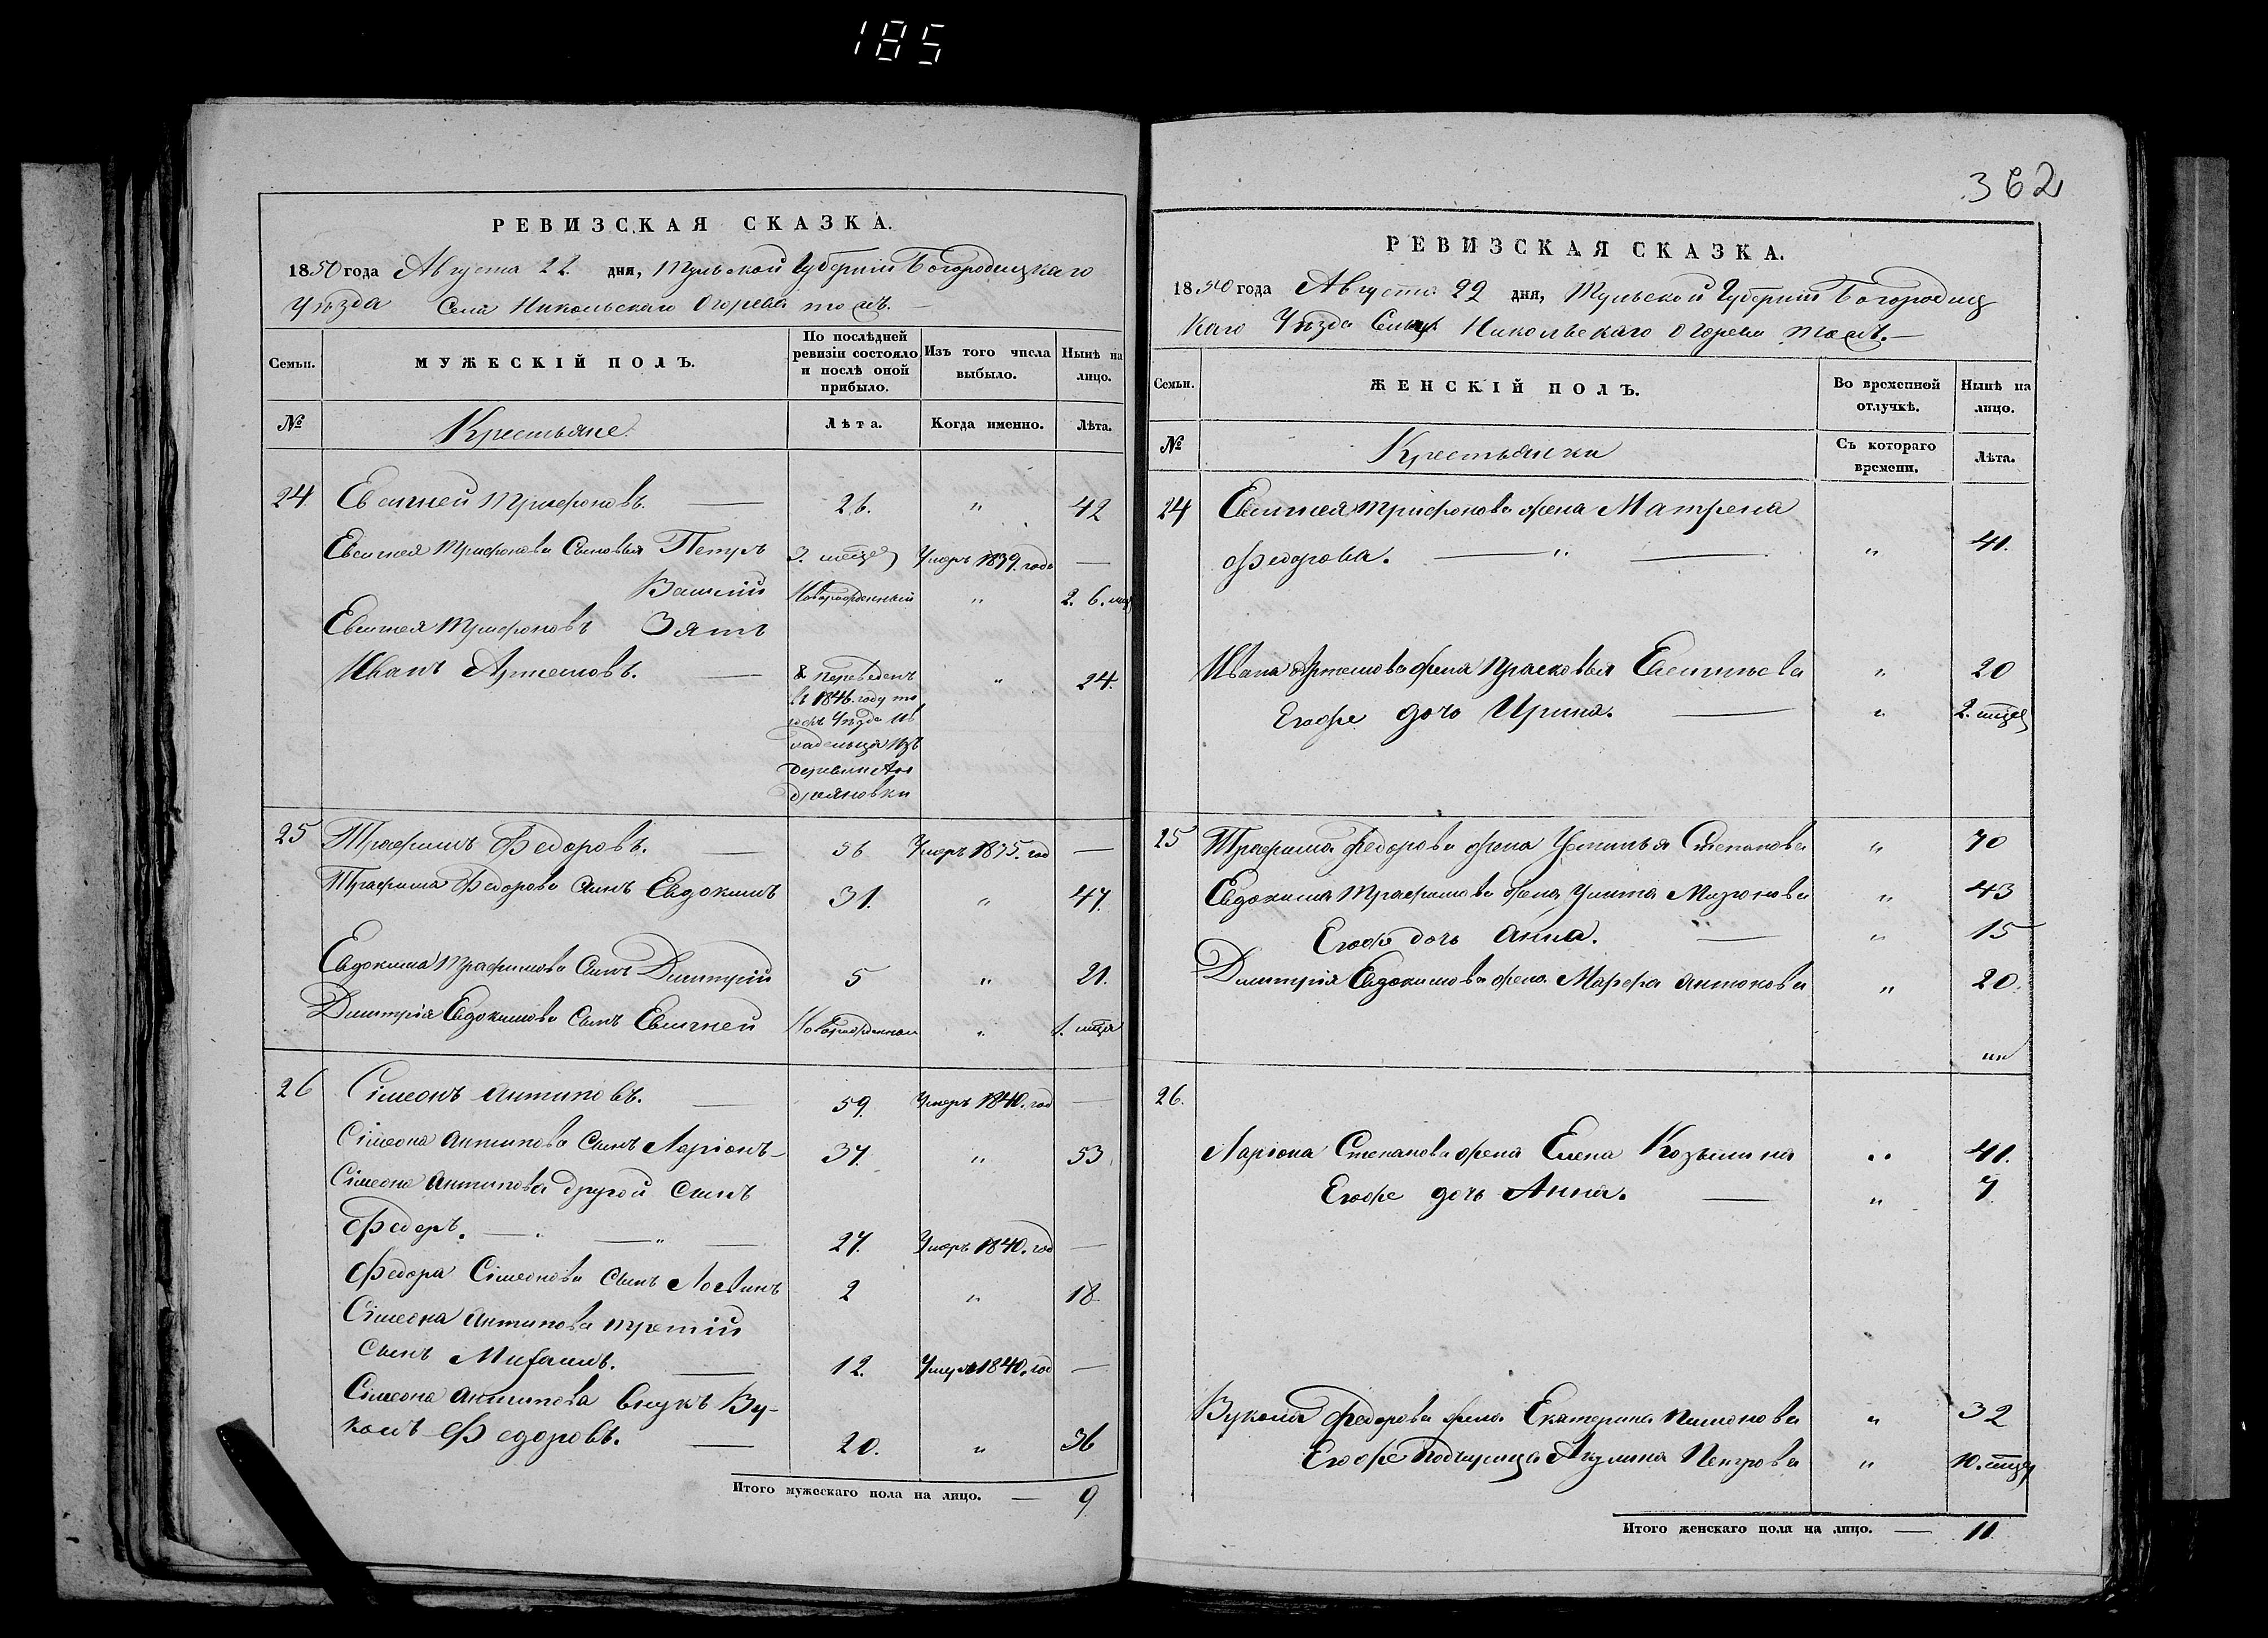 185
РЕВИЗСКАЯ СКАЗКА.
1850 года Августа 22. дня, Тульской Губерніи Богородицкаго
Уѣзда Села Никольскаго Огорева тожъ.
Семьи. МУЖЕСКІЙ ПОЛЪ. По послѣдней ревизіи состояло и послѣ оной прибыло. Изъ того числа выбыло. Нынѣ на лицо.
№ Крестьяне. Лѣта. Когда именно. Лѣта.
24 Евсигней Трифоновъ. — 26. „ 42
Евсигнея Трифонова Сыновья Петръ 3. мѣсец Умеръ 1839. года —
Василій Новорожденный „ 2. 6. мѣц
Евсигнея Трифоновъ Зять
Иванъ Артемовъ. — 8 Переведенъ „ 24.
въ 1846. году то
деревни Ан
дреяновки
25 Трофимъ Федоровъ. — 56 Умеръ 1835. год —
Трофима Федорова сынъ Евдокимъ 31. „ 47.
Евдокима Трофимова Сынъ Дмитрій 5 „ 21.
Дмитрія Евдокимова сынъ Евсигней Новорожденной „ 1. мѣця
26 Сімеонъ Антиповъ. — 59. Умеръ 1840. год —
Сімеона Антипова сынъ Ларіонъ 37. „ 53.
Сімеона Антипова другой сынъ
Федоръ. — „ — „ — 27. Умеръ 1840. год —
Федора Сімеонова сынъ Логинъ 2 „ 18.
Сімеона Антипова третій
сынъ Михаилъ. — 12. Умеръ 1840. год —
Сімеона Антипова внукъ Ву-
колъ Федоровъ. — 20. „ 36
Итого мужескаго пола на лицо. — 9
362
РЕВИЗСКАЯ СКАЗКА.
1850 года Августа 22 дня, Тульской Губерніи Богородиц
каго Уѣзда Села Никольскаго Огорева тожъ. —
Семьи. ЖЕНСКІЙ ПОЛЪ. Во временной отлучкѣ. Нынѣ на лицо.
№ Крестьянки Съ котораго времени. Лѣта.
24 Евсигнея Трифонова жена Матрена
Федорова. — „ — „ 41.
Ивана Артемова жена Прасковья Евсигнева „ 20
Егоже дочь Ирина. — „ 2. мѣцев
25 Трофима Федорова жена Устинья Степанова „ 70
Евдокима Трофимова жена Улита Миронова „ 43
Егоже дочь Анна. — „ 15
Дмитрія Евдокимова жена Марфа Антонова „ 20.
26.
Ларіона Степанова жена Елена Козьмина „ 41.
Егоже дочь Анна. — „ 7
Вукола Федорова жена Екатерина Пименова „ 32
Егоже Падчерица Акулина Петрова „ 10. мѣцев
Итого женскаго пола на лицо. — 11